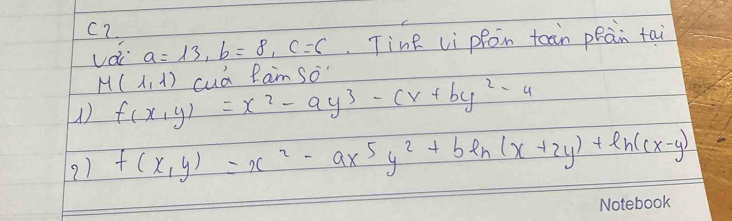 C2.
với a = 13, b = 8, c = 6. Tính vi phân toàn phần tại
M(1,1) của hàm số
1) f(x,y) = x² - ay³ - cx + by² - 4
2) f(x,y) = x² - ax⁵y² + bln(x+2y) + ln(cx-y)
Notebook